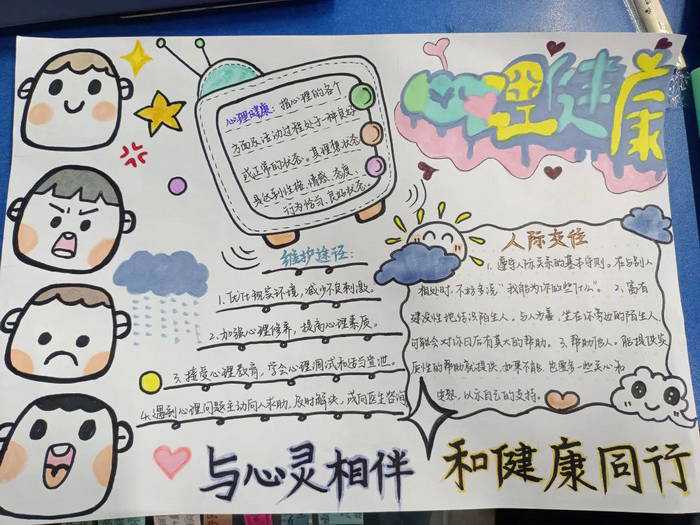 心理健康
心理健康：指心理的各个
方面及活动过程处于一种良好
或正常的状态。其理想状态
是达到性格、情感、态度、
行为恰当、良好状态。
维护途径：
1.优化视觉环境，减少不良刺激。
2.加强心理修养，提高心理素质。
3.接受心理教育，学会心理调试和适当宣泄。
4.遇到心理问题主动向人求助，及时解决，或向医生咨询
人际交往
1.遵守人际关系的基本守则。在与别人
相处时，不妨多说"我能为你做些什么"。2.富有
建设性地结识陌生人。与人为善，坐在你旁边的陌生人
可能会对你日后有莫大的帮助。3.帮助他人。能提供实
质性的帮助就提供，如果不能，也要多一些关心和
安慰，以示自己的支持。
与心灵相伴
和健康同行